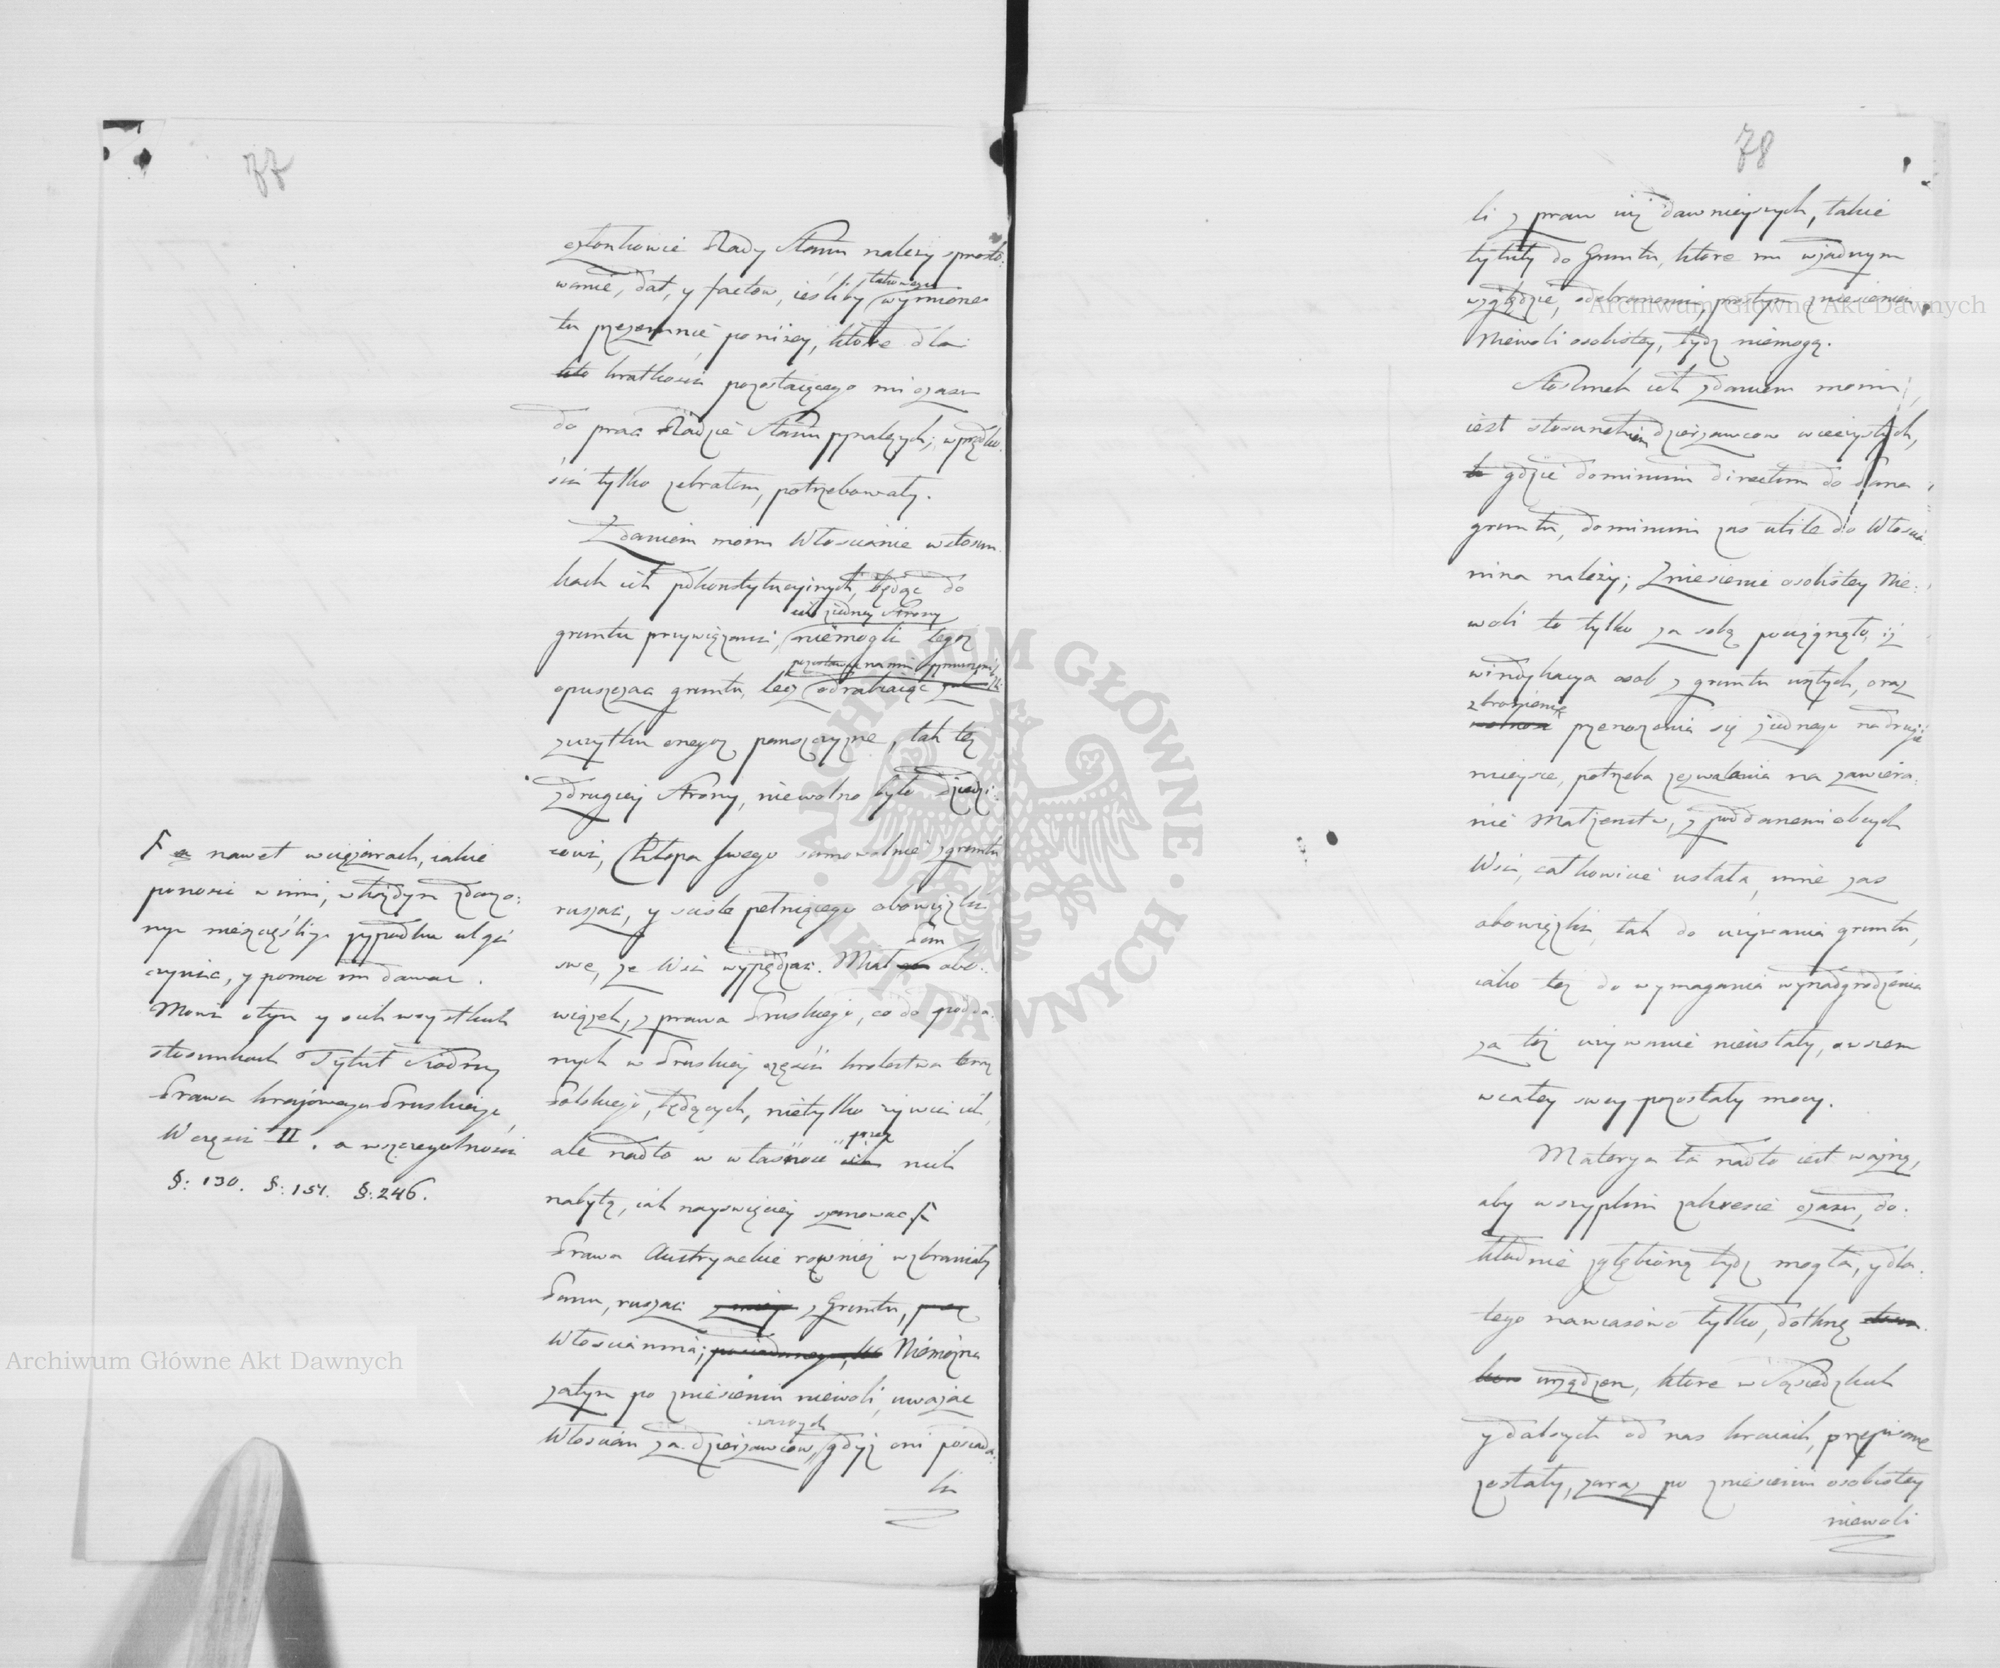 77
członkowie Rady Stanu należy sprosto:
wanie, dat, y factow, iesliby takowego wymione
tu przezemnie poniżey, ktore dla
kto kratkosci pozostaiącego mi czasu
do prac Radzie Stanu
sci tylko zebrałem, potrzebowały.
Zdaniem moim Włoscianie w stosun
kach ich pdkonstytucyinych, będąc do
gruntu przywiązani, niemogli tegoż
opuszczac gruntu, lecz odrabiaiąc
zurytku onegoż panszczyznę, tak też
zdrugiey strony, niewolno było dziedzi:
cowi, Chłopa swego samowolnie zgruntu
ruszać, y scisle pełniącego obowiązki
swe, ze Wsi wypędzać. Miał Pan obo:
wiązek, z prawa Pruskiego, co do podda:
nych w Pruskiey częsci krolestwa teraz
Polskiego, będących, nietylko życie ich
ale nadto w własnosc ich przez nich
nabytą, iak nayswięciey szanowac F
Prawa Austryackie rownież wzbraniały
Panu, ruszać z Gruntu,
Włoscianina; Niemożna
zatym po zniesieniu niewoli, uważac
Włoscian za dzierzawcow, gdyż oni posiada:
li
F a nawet w ciężarach, iakie
ponosic winni, w każdym zdarzo:
nym nieszczęśliym przypadku ulgę
czynic, y pomoc im dawac.
Mowi otym y o ich wszystkich
stosunkach Tytuł Siodmy
Prawa kraiowego Pruskiego
W częsci II. a wszczegolnosci
§: 130. §: 154. §: 246.
78
li z praw iuż dawnieyszych, takie
tytuły do Gruntu, ktore mu wżadnym
względzie, odebranemi prostym zniesieniem
Niewoli osobistey, bydz niemogą.
Stosunek ich zdaniem moim,
iest stosunkiem dzierzawcow wieczystych,
gdzie dominium directum do Pana
gruntu, dominium zas utile do Włoscia
nina należy; Zniesienie osobistey Nie:
woli to tylko za sobą pociągnęło, iż
windykacya osob z gruntu uszłych, oraz
zbronienie wolnosc przenoszenia się z iednego na drugie
mieysce, potrzeba zezwalania na zawiera:
nie Małzenstw, z poddanemi obcych
Wsi, całkowicie ustała, inne zas
obowiązki, tak do używania gruntu,
iako też do wymagania wynadgrodzenia
za też używanie nieustały, owszem
w całey swey pozostały mocy.
Materya ta nadto iest ważną,
aby w szczupłym zakresie czasu, do:
kładnie zgłębioną bydz mogła, y dla:
tego nawiasowo tylko, dotknę
urządzen, ktore w Sąsiedzkich
y dalszych od nas kraiach, przepisane
zostały, zaraz po zniesieniu osobistey
niewoli
ARCHIWUM GŁÓWNE AKT DAWNYCH
Archiwum Główne Akt Dawnych
Archiwum Główne Akt Dawnych